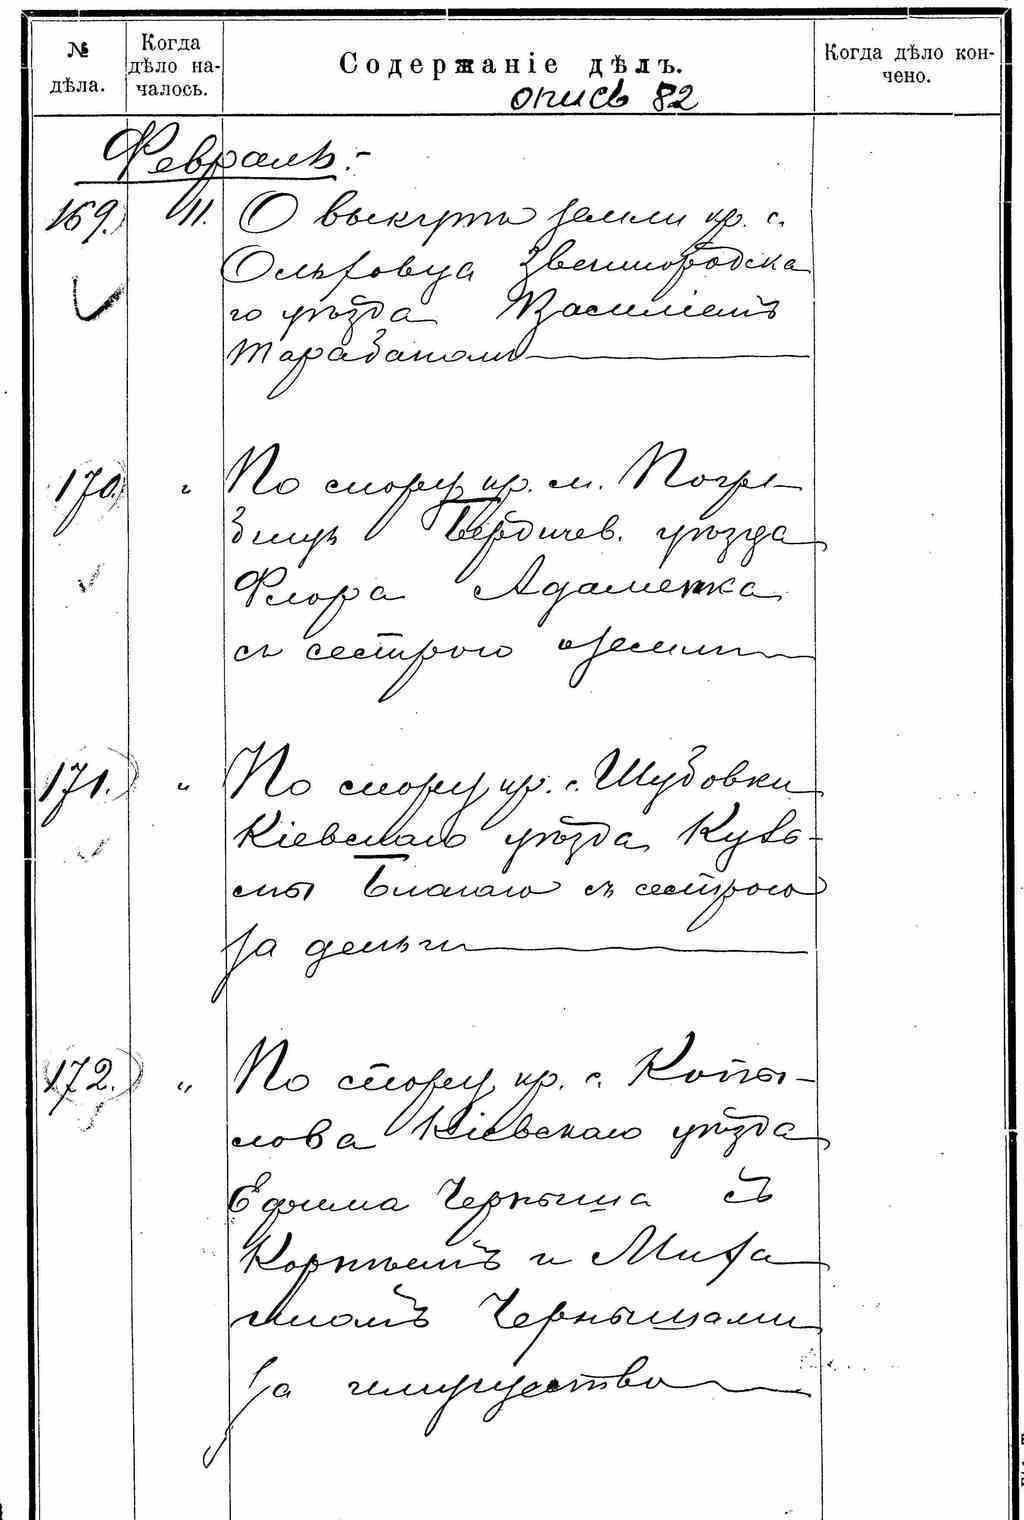 № дѣла.
Когда дѣло на-
чалось.
Содержаніе дѣлъ.
Когда дѣло кон-
чено.
опись 82
Февраль:-
169. 11. О выкупѣ земли кр. с.
Ольховца Звенигородска
го уѣзда Василіемъ
Тарабаномъ
170. " По спору кр. м. Погре-
бищъ Бердичев. уѣзда
Флора Адаменка
съ сестрою о земли
171. " По спору кр. с. Шубовки
Кіевскаго уѣзда Кузь-
мы Благаго съ сестрою
за деньги
172. " По спору кр. с. Копы-
лова Кіевскаго уѣзда
Ефима Черныша съ
Корнѣемъ и Миха
иломъ Чернышами
за имущество